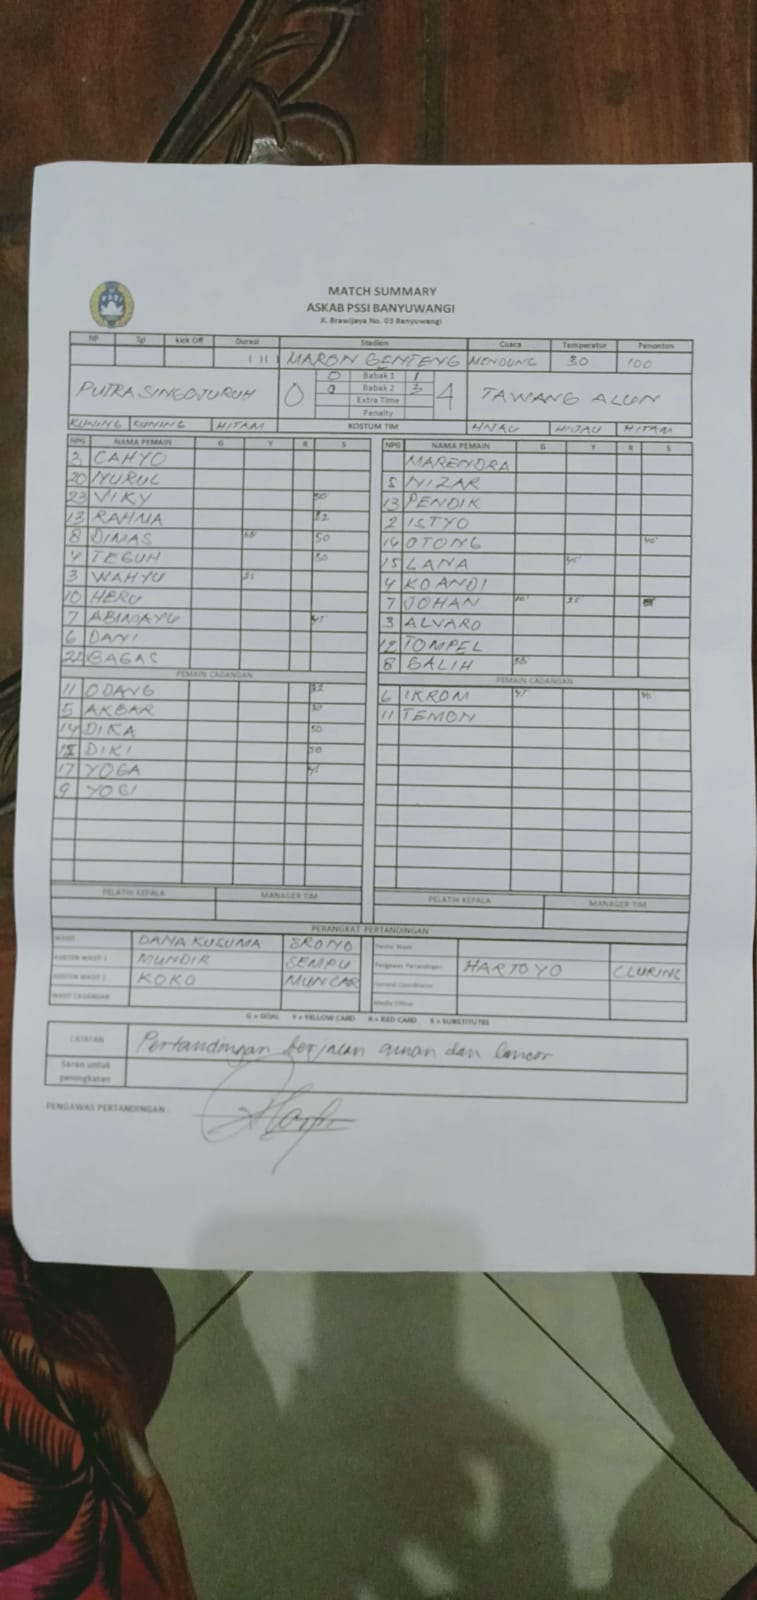 MATCH SUMMARY
ASKAB PSSI BANYUWANGI
Jl. Brawijaya No. 03 Banyuwangi
NP Tgl kick Off Durasi Stadion Cuaca Temperatur Penonton
MARON GENTENG MENDUNG 30 100
PUTRA SINGOJURUH 0 0 Babak 1 1 4 TAWANG ALUN
0 Babak 2 3
Extra Time
Penalty
KUNING KUNING HITAM KOSTUM TIM HIJAU HIJAU HITAM
NPG NAMA PEMAIN G Y R S NPG NAMA PEMAIN G Y R S
2 CAHYO MARENDRA
20 NURUL 5 NIZAR
23 VIKY 50' 13 PENDIK
13 RAHMA 82 2 ISTYO
8 DIMAS 50 14 OTONG
4 TEGUH 15 LANA
3 WAHYU 4 KOANDI
10 HERU 7 JOHAN
7 ABIMAYU 3 ALVARO
6 DANI 12 TOMPEL
BAGAS 8 GALIH
PEMAIN CADANGAN PEMAIN CADANGAN
11 ODANG 6 IKROM
5 AKBAR 11 TEMON
14 DIKA 50
DIKI 50
17 YOGA
9 YOGI
PELATIH KEPALA MANAGER TIM PELATIH KEPALA MANAGER TIM
PERANGKAT PERTANDINGAN
WASIT DANA KUSUMA SRONO
ASISTEN WASIT 1 MUNDIR SEMPU Pengawas Pertandingan HARTOYO CLURING
ASISTEN WASIT 2 KOKO MUNCAR General Coordinator
WASIT CADANGAN Media Officer
G = GOAL Y = YELLOW CARD R = RED CARD S = SUBSTITUTES
CATATAN Pertandingan berjalan aman dan lancar
Saran untuk peningkatan
PENGAWAS PERTANDINGAN :